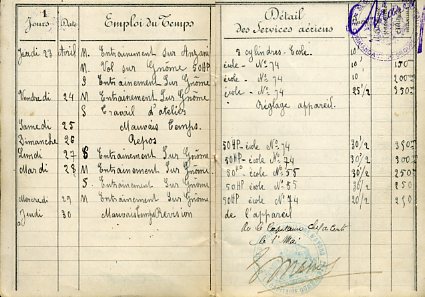 1
Jours Date Emploi du Temps
Jeudi 23 Avril M. Entrainement sur Anzani
M. Vol sur Gnôme 50HP
S Entrainement Sur Gnôme
Vendredi 24 M. Entrainement Sur Gnôme
S Travail d'atelier
Samedi 25 Mauvais Temps.
Dimanche 26 Repos
Lundi 27 S Entrainement Sur Gnôme
Mardi 28 M Entrainement Sur Gnôme
S. Entrainement Sur Gnôme
Mercredi 29 M Entrainement Sur Gnôme
Jeudi 30 Mauvais Temps Revision
Détail
des Services aériens
3 cylindres - Ecole 10'
école - No 74 10' 150
école - No 74 10' 200
école - No 74 25'/2
Réglage appareil.
50HP - école No 74 30'/2 350
50HP - école No 74 30'/2 300
école No 55 30'/2 250
50HP école No 55 30/2 250
50HP école No 74 20'/2 250
de l'appareil
Vu le Capitaine
le 1er Mai